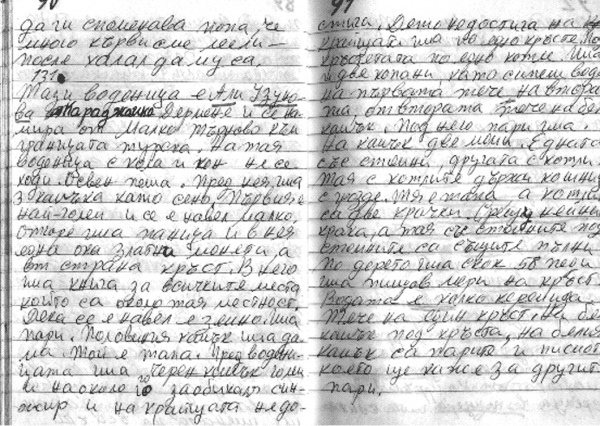 90
да ги споменава попа че
много кърви сме леели –
после халал да му са.
131.
Тази воденица е Али Узуно-
ва Дермене и се на-
мира от Малко Търново към
границата турска. На тая
воденица с кола и кон не се
ходи. Освен пеша. Пред нея има
3 камъка като сено. Първият е
най-голем и се е навел малко.
отгоре има паница и в нея
една ока златни монети а
от страна кръст. В него
има книга за всичките места
които са около тая местност.
Дека се е навел е земно. Има
пари. Половиния камък има да-
ма. Той е тапа. Пред водени-
цата има черен камък голем
и на около 20 заобикалт син-
жир и на краищата недо-
91
стига. Дето недостига на
краищата има по едно кръсте. Под
кръстетата по едно котле. Има
и две копани, като синеш вода
на първата тече на втора
та от втората тече на бел
камък. Под него пари има.
На камък две моми. Едната
със стомни, другата с котли.
Тая с котлите държи кошни
с грозде. Тя е тапа а котли
са две крачки срещу нейни
крака, а тая със стомните под
стомните са същите пълни
По дерето има скок 58 педи
има пищов мери на кръст.
Водата е колко керемида.
Тече на един кръст на бел
камък под кръста, на белия
камък са парите и писмото
което ще каже за другите
пари.